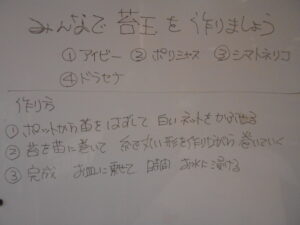 みんなで 苔玉 を 作りましょう
① アイビー ② ポリシャス ③ シマトネリコ
④ ドラセナ
作り方
① ポットから苗をはずして 白いネットをかぶせる
② 苔を苗に巻いて 糸で丸い形を作りながら 巻いていく
③ 完成 お皿に乗せて 時間 お水に漬ける